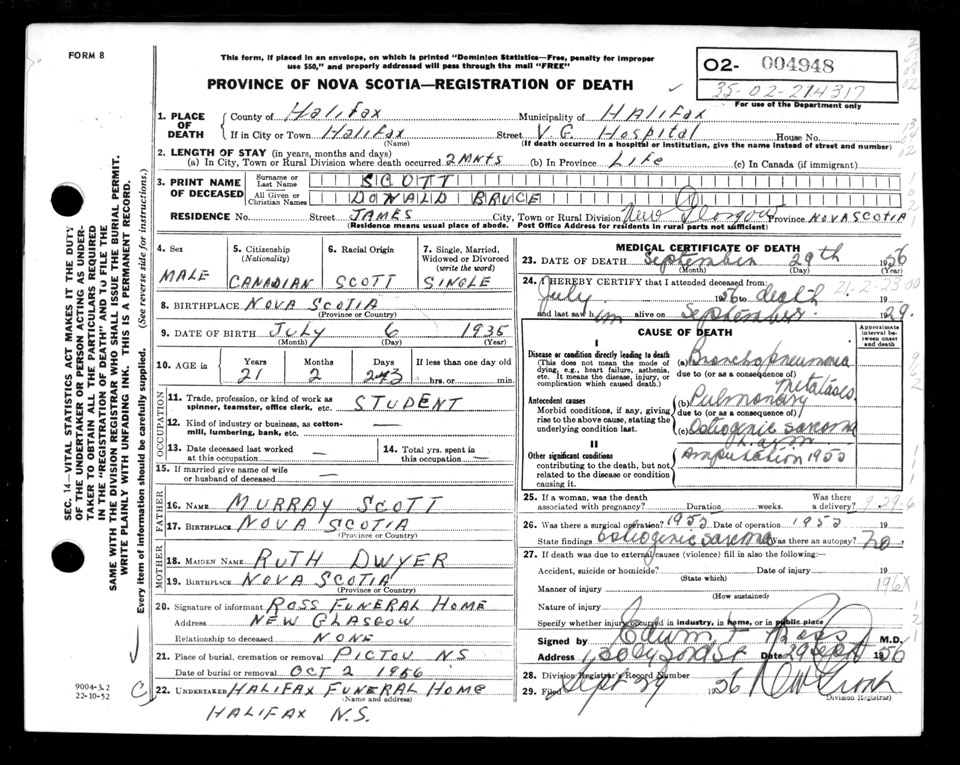 FORM 8
This form, if placed in an envelope, on which is printed "Dominion Statistics—Free, penalty for improper
use $50," and properly addressed will pass through the mail "FREE"
PROVINCE OF NOVA SCOTIA—REGISTRATION OF DEATH
O2- 004948
35-02-214317
For use of the Department only
1. PLACE OF DEATH
County of Halifax Municipality of HALIFAX
If in City or Town Halifax Street V.G. Hospital House No.
(Name) (If death occurred in a hospital or institution, give the name instead of street and number)
2. LENGTH OF STAY (in years, months and days)
(a) In City, Town or Rural Division where death occurred 2 MNTS (b) In Province LIFE (c) In Canada (if immigrant)
3. PRINT NAME OF DECEASED
Surname or Last Name SCOTT
All Given or Christian Names DONALD BRUCE
RESIDENCE No. Street JAMES City, Town or Rural Division New Glasgow Province NOVA SCOTIA
(Residence means usual place of abode. Post Office Address for residents in rural parts not sufficient)
4. Sex
MALE
5. Citizenship (Nationality)
CANADIAN
6. Racial Origin
SCOTT
7. Single, Married, Widowed or Divorced (write the word)
SINGLE
8. BIRTHPLACE NOVA SCOTIA
(Province or Country)
9. DATE OF BIRTH JULY 6 1935
(Month) (Day) (Year)
10. AGE in Years Months Days If less than one day old
21 2 23 hrs. or min.
OCCUPATION
11. Trade, profession, or kind of work as
spinner, teamster, office clerk, etc. STUDENT
12. Kind of industry or business, as cotton-
mill, lumbering, bank, etc. —
13. Date deceased last worked at this occupation —
14. Total yrs. spent in this occupation —
15. If married give name of wife
or husband of deceased —
FATHER
16. NAME MURRAY SCOTT
17. BIRTHPLACE NOVA SCOTIA
(Province or Country)
MOTHER
18. MAIDEN NAME RUTH DWYER
19. BIRTHPLACE NOVA SCOTIA
(Province or Country)
20. Signature of informant ROSS FUNERAL HOME
Address NEW GLASGOW
Relationship to deceased NONE
21. Place of burial, cremation or removal PICTOU NS
Date of burial or removal OCT 2 1956
22. UNDERTAKER HALIFAX FUNERAL HOME
(Name and address)
HALIFAX N.S.
MEDICAL CERTIFICATE OF DEATH
23. DATE OF DEATH September 29th 1956
(Month) (Day) (Year)
24. I HEREBY CERTIFY that I attended deceased from:
21-2-23-00
July 1956 to death 19
and last saw him alive on September 1929.
CAUSE OF DEATH
Approximate interval between onset and death
I
Disease or condition directly leading to death (a) Bronchopneumonia
(This does not mean the mode of dying, e.g., heart failure, asthenia, etc. It means the disease, injury, or complication which caused death.)
due to (or as a consequence of)
Antecedent causes (b) Pulmonary Metatases
Morbid conditions, if any, giving rise to the above cause, stating the underlying condition last.
due to (or as a consequence of)
(c) Osteogenic sarcoma
L. arm
II
Other significant conditions Amputation 1955
contributing to the death, but not related to the disease or condition causing it.
25. If a woman, was the death associated with pregnancy? Duration weeks. Was there a delivery?
9-29-6
26. Was there a surgical operation? 1955 Date of operation 1955 19
State findings Osteogenic sarcoma Was there an autopsy? no
27. If death was due to external causes (violence) fill in also the following:
Accident, suicide or homicide? Date of injury 19
(State which)
Manner of injury 196X
(How sustained)
Nature of injury
Specify whether injury occurred in industry, in home, or in public place
Signed by Edwin F Ross M.D.
Address Date 29 Sept 1956
28. Division Registrar's Record Number
29. Filed Sept 29 1956
Division Registrar)
SEC. 14—VITAL STATISTICS ACT MAKES IT THE DUTY
OF THE UNDERTAKER OR PERSON ACTING AS UNDER-
TAKER TO OBTAIN ALL THE PARTICULARS REQUIRED
IN THE "REGISTRATION OF DEATH" AND TO FILE THE
SAME WITH THE DIVISION REGISTRAR WHO SHALL ISSUE THE BURIAL PERMIT.
WRITE PLAINLY WITH UNFADING INK. THIS IS A PERMANENT RECORD.
Every item of information should be carefully supplied. (See reverse side for instructions.)
9004-3.2
22-10-52
C